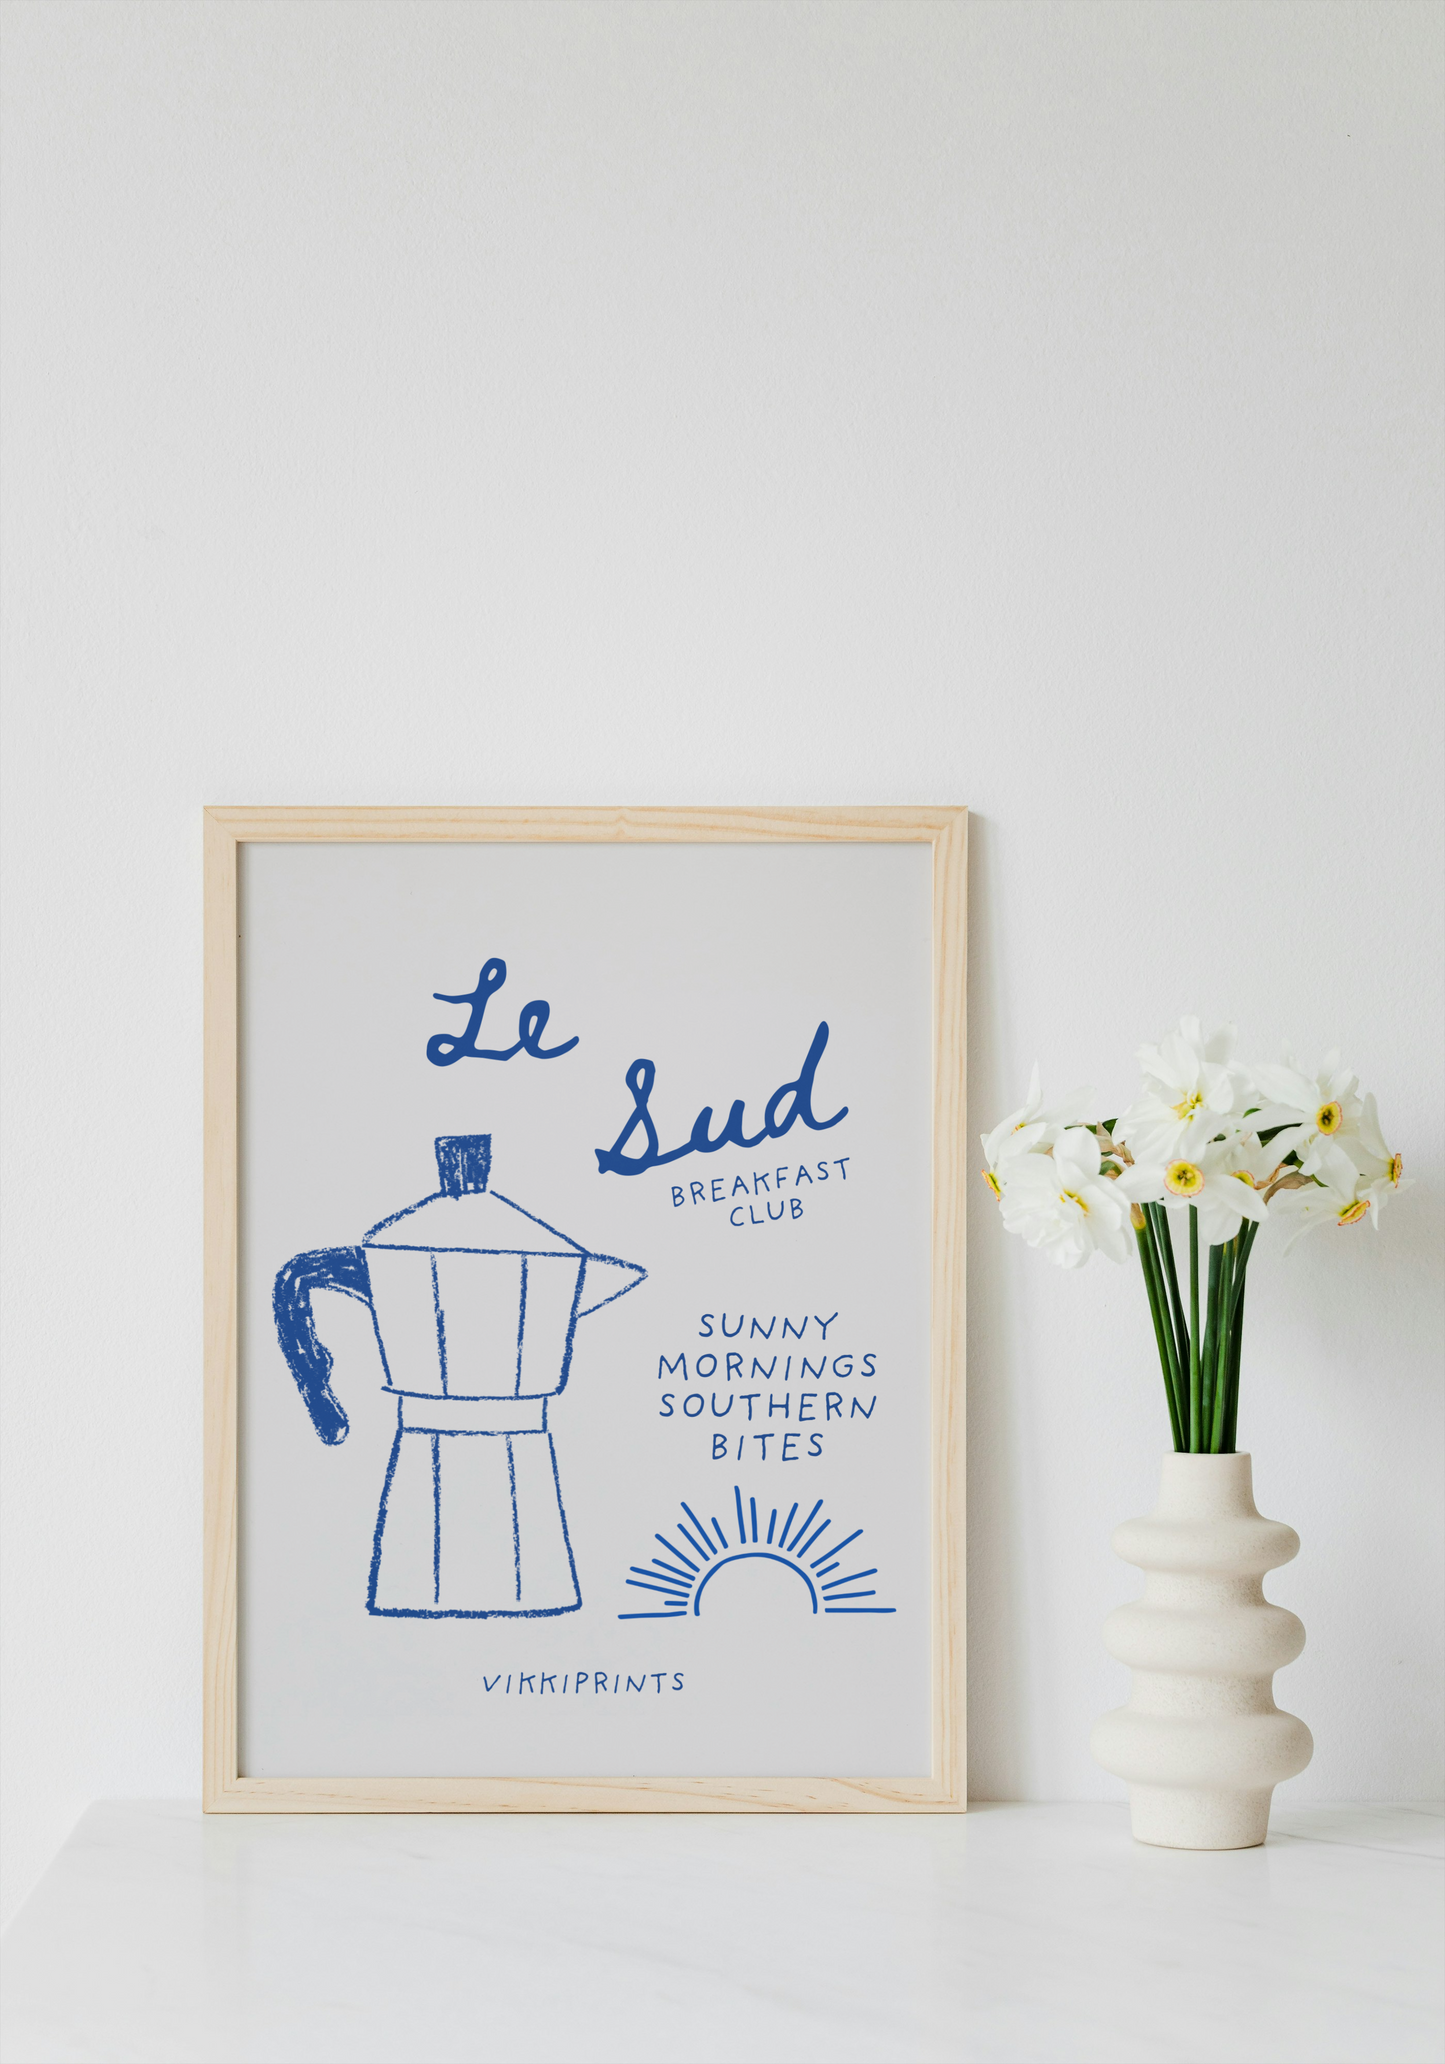 Le
Sud
BREAKFAST
CLUB
SUNNY
MORNINGS
SOUTHERN
BITES
VIKKIPRINTS